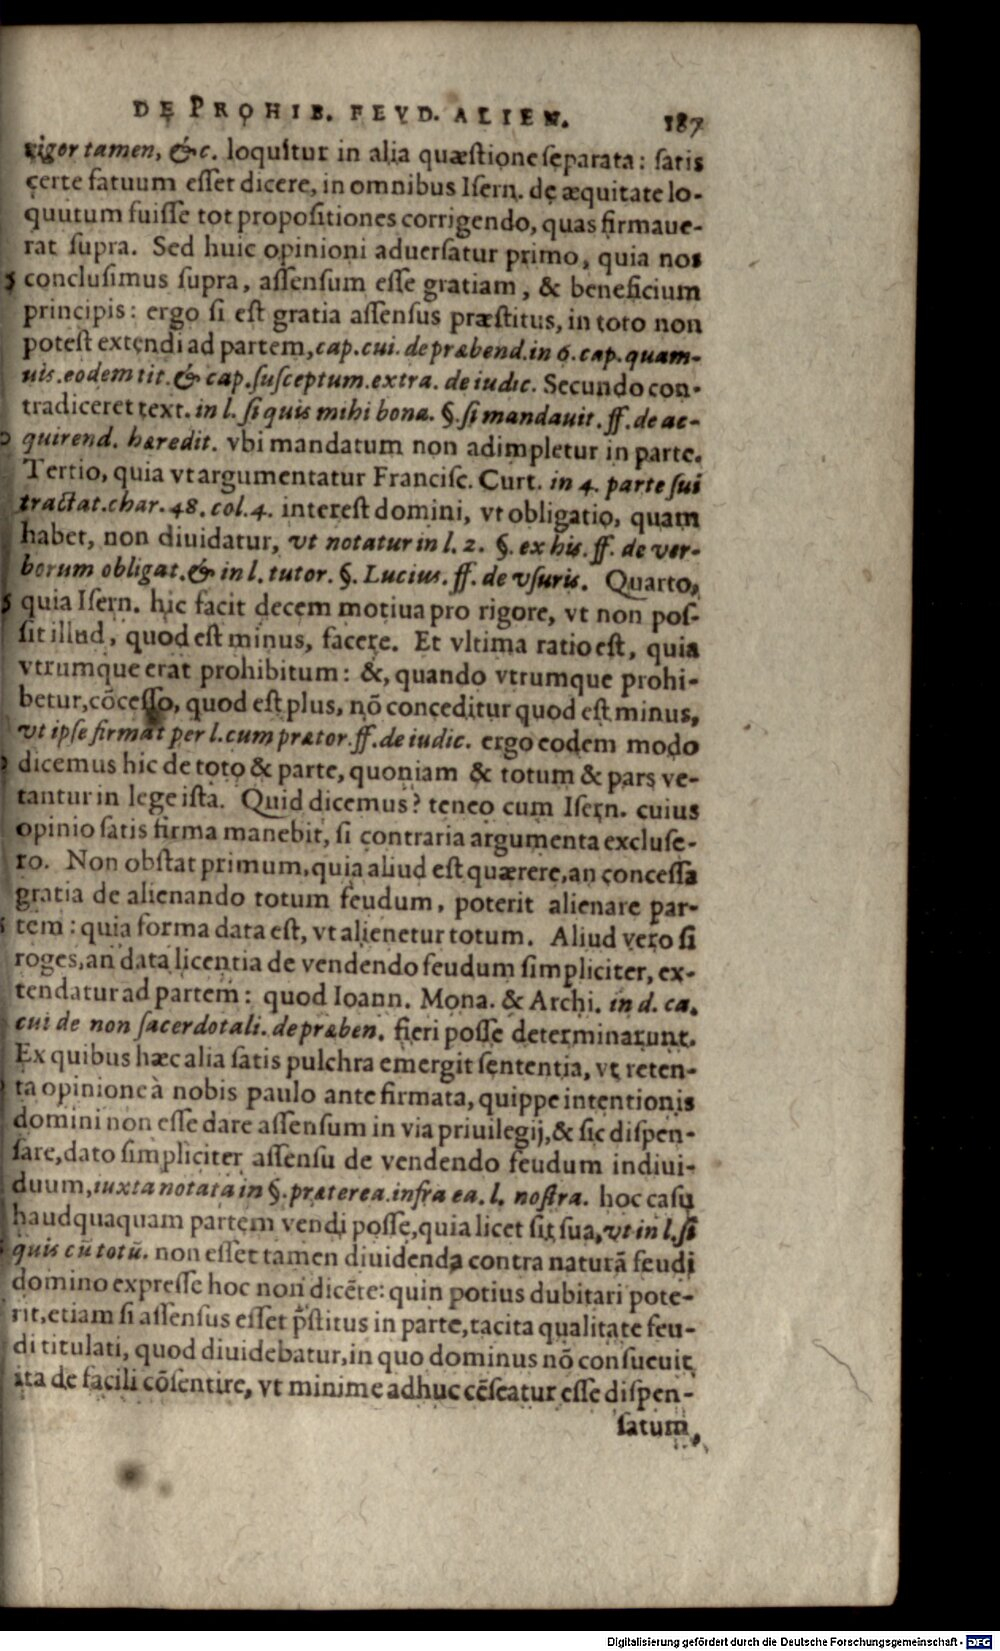 DE PROHIB. FEVD. ALIEN. 187
rigor tamen, &c. loquitur in alia quæstione separata: satis
certe fatuum esset dicere, in omnibus Isern. de æquitate lo-
quutum fuisse tot propositiones corrigendo, quas firmaue-
rat supra. Sed huic opinioni aduersatur primo, quia nos
conclusimus supra, assensum esse gratiam, & beneficium
principis: ergo si est gratia assensus præstitus, in toto non
potest extendi ad partem, cap. cui. de præbend. in 6. cap. quam-
uis. eodem tit. & cap. susceptum. extra. de iudic. Secundo con-
tradiceret text. in l. si quis mihi bona. §. si mandauit. ff. de ac-
quirend. hæredit. vbi mandatum non adimpletur in parte.
Tertio, quia vt argumentatur Francisc. Curt. in 4. parte sui
tractat. char. 48. col. 4. interest domini, vt obligatio, quam
habet, non diuidatur, vt notatur in l. 2. §. ex his. ff. de ver-
borum obligat. & in l. tutor. §. Lucius. ff. de vsuris. Quarto,
quia Isern. hic facit decem motiua pro rigore, vt non pos-
sit illud, quod est minus, facere. Et vltima ratio est, quia
vtrumque erat prohibitum: &, quando vtrumque prohi-
betur, cōcesso, quod est plus, nō conceditur quod est minus,
vt ipse firmat per l. cum prætor. ff. de iudic. ergo eodem modo
dicemus hic de toto & parte, quoniam & totum & pars ve-
tantur in lege ista. Quid dicemus? teneo cum Isern. cuius
opinio satis firma manebit, si contraria argumenta excluse-
ro. Non obstat primum, quia aliud est quærere, an concessa
gratia de alienando totum feudum, poterit alienare par-
tem: quia forma data est, vt alienetur totum. Aliud vero si
roges, an data licentia de vendendo feudum simpliciter, ex-
tendatur ad partem: quod Ioann. Mona. & Archi. in d. ca.
cui de non sacerdotali. de præben. fieri posse determinarunt.
Ex quibus hæc alia satis pulchra emergit sententia, vt reten-
ta opinione à nobis paulo ante firmata, quippe intentionis
domini non esse dare assensum in via priuilegij, & sic dispen-
sare, dato simpliciter assensu de vendendo feudum indiui-
duum, iuxta notata in §. præterea. infra ea. l. nostra. hoc casu
haudquaquam partem vendi posse, quia licet sit sua, vt in l. si
quis cū totū. non esset tamen diuidenda contra naturā feudi
domino expresse hoc non dicēte: quin potius dubitari pote-
rit, etiam si assensus esset p̄stitus in parte, tacita qualitate feu-
di titulati, quod diuidebatur, in quo dominus nō consueuit
ita de facili cōsentire, vt minime adhuc cēseatur esse dispen-
satum,
Digitalisierung gefördert durch die Deutsche Forschungsgemeinschaft - DFG